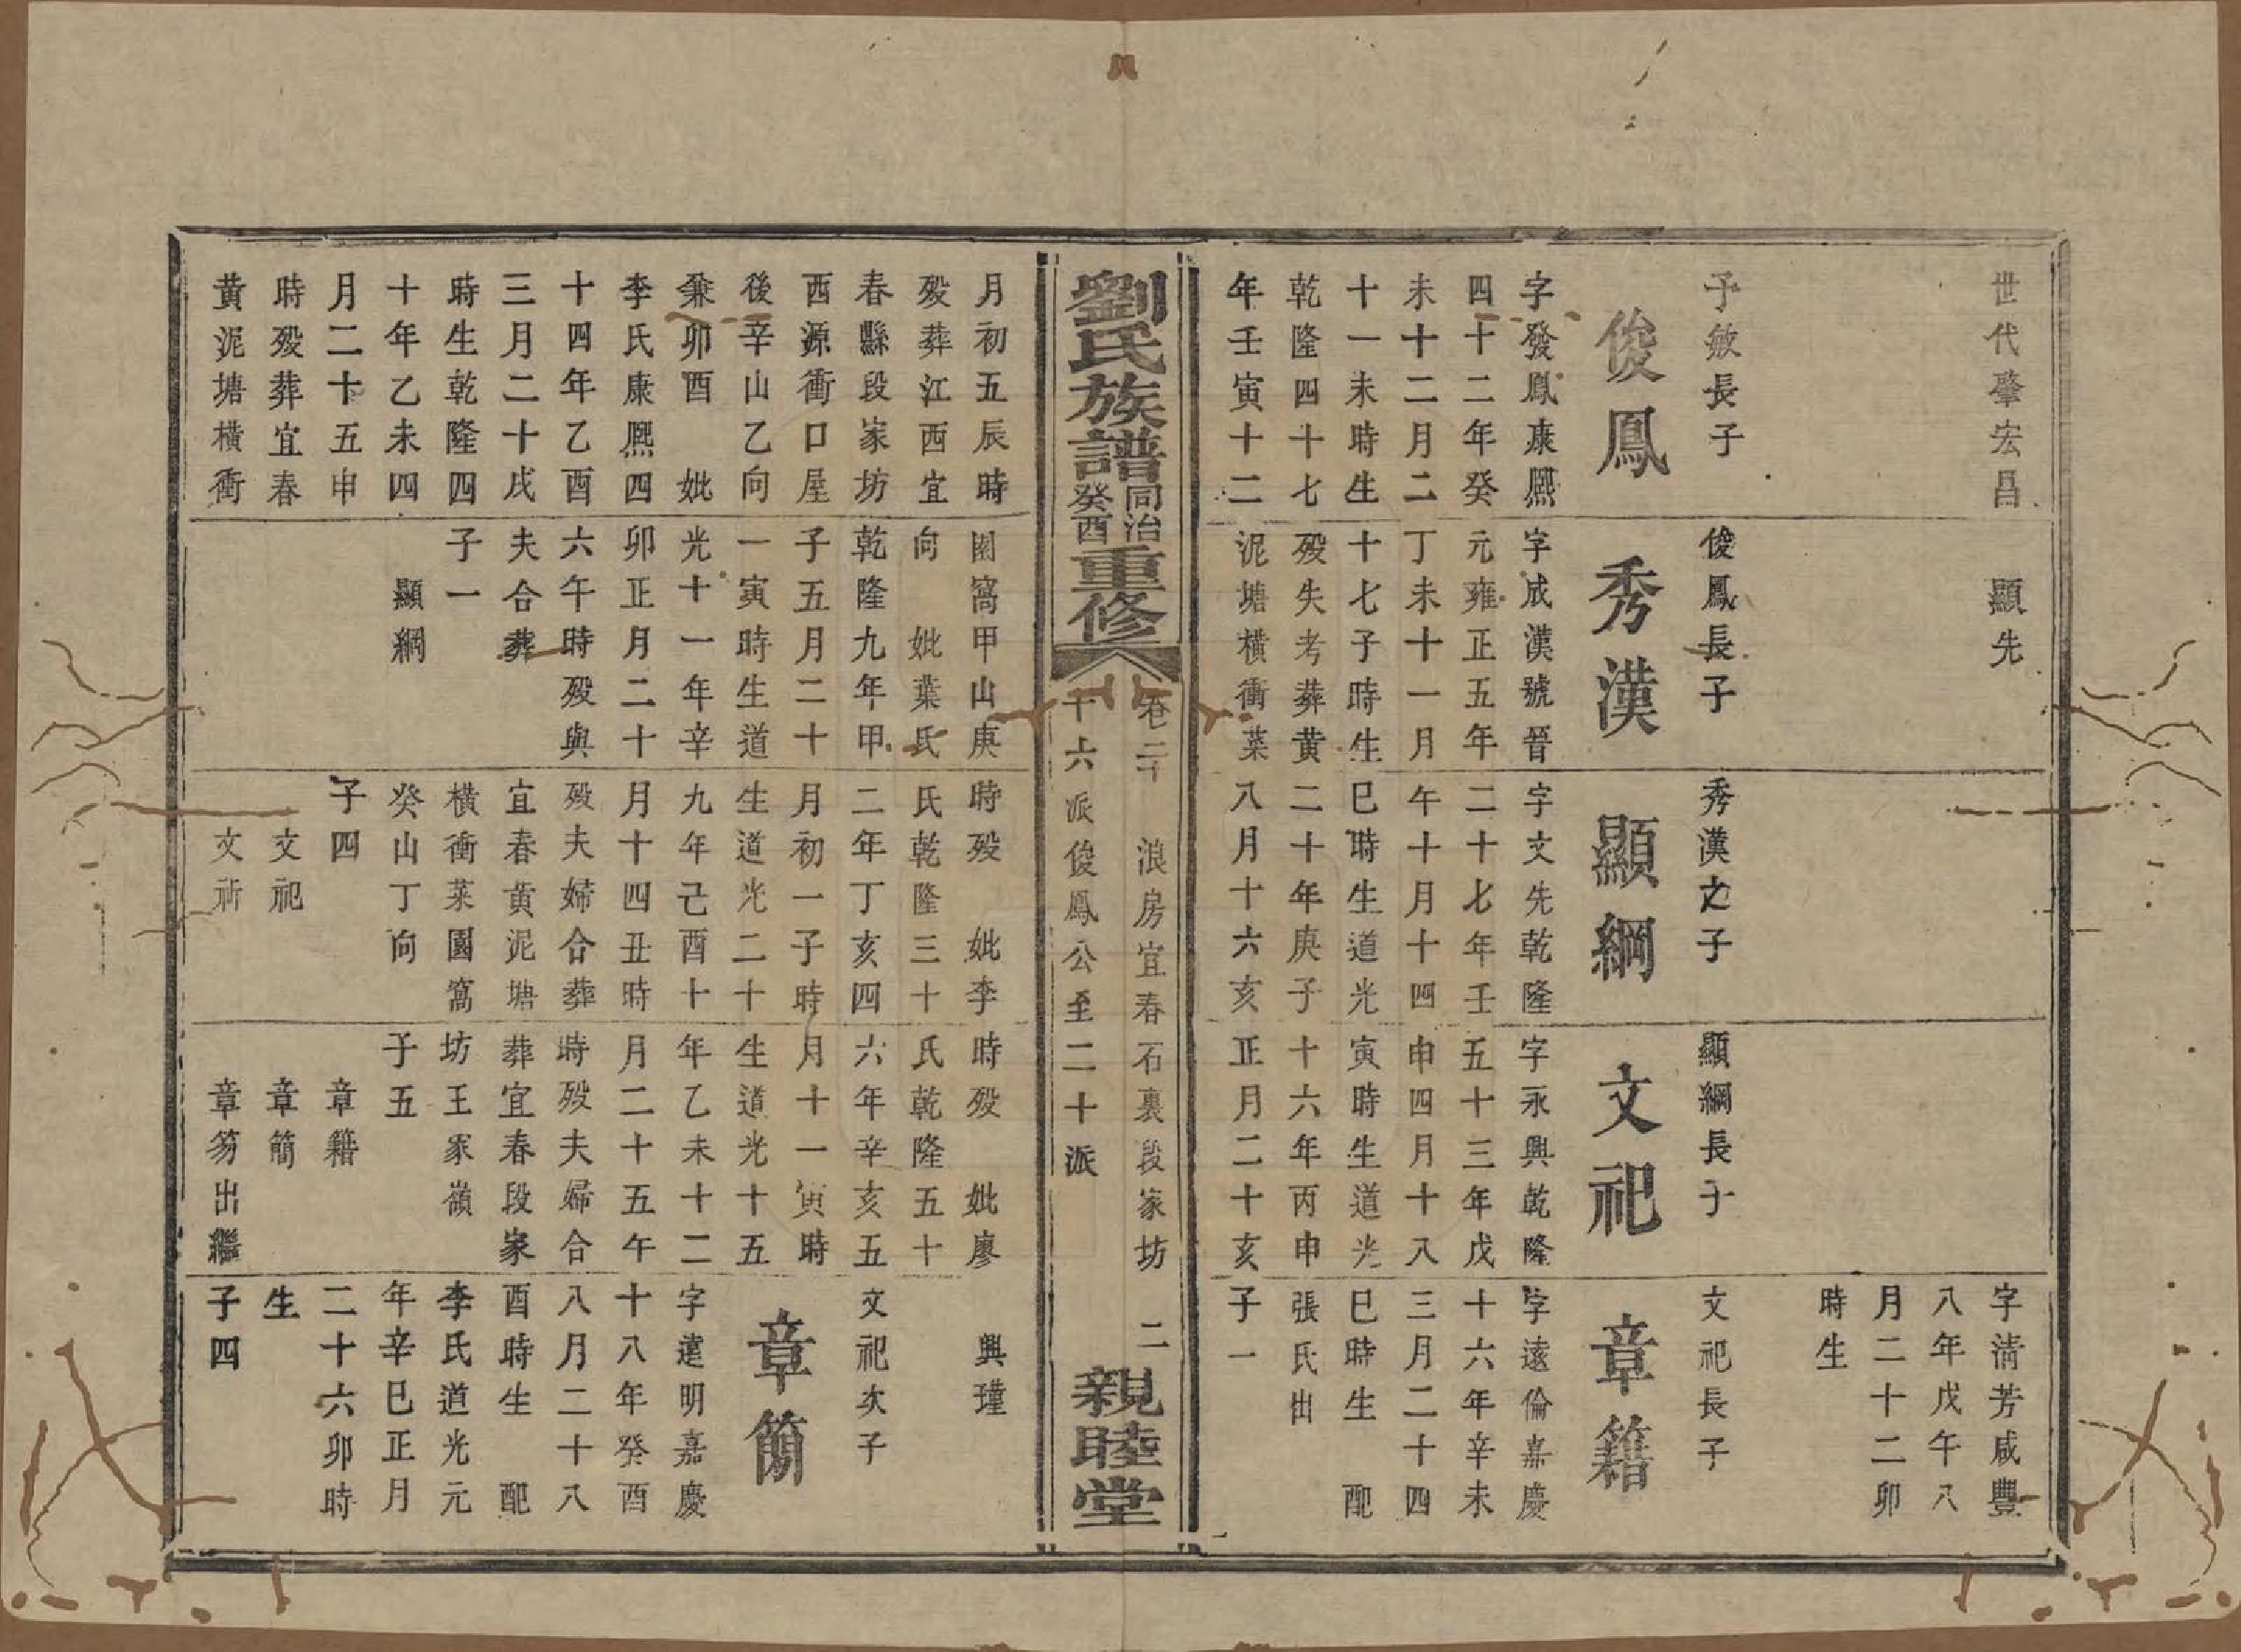 世代肇宏昌
子敏長子
俊鳳
字發鳳康熙
四十二年癸
未十二月二
十一未時生
乾隆四十七
年壬寅十二
顯先
俊鳳長子
秀漢
字成漢號晉
元雍正五年
丁未十一月
十七子時生
歿失考葬黃
泥塘橫衝菜
秀漢之子
顯綱
字文先乾隆
二十七年壬
午十月十四
巳時生道光
二十年庚子
八月十六亥
顯綱長子
文祀
字永興乾隆
五十三年戊
申四月十八
寅時生道光
十六年丙申
正月二十亥
字清芳咸豐
八年戊午八
月二十二卯
時生
文祀長子
章籍
字遠倫嘉慶
十六年辛未
三月二十四
巳時生 配
張氏出
子一
劉氏族譜 同治癸酉 重修
卷二 浪房宜春石裏段家坊 二
十六派俊鳳公至二十派
親睦堂
月初五辰時
歿葬江西宜
春縣段家坊
西源衝口屋
後辛山乙向
兼卯酉 妣
李氏康熙四
十四年乙酉
三月二十戌
時生乾隆四
十年乙未四
月二十五申
時歿葬宜春
黃泥塘橫衝
園窩甲山庚
向 妣葉氏
乾隆九年甲
子五月二十
一寅時生道
光十一年辛
卯正月二十
六午時歿與
夫合葬
子一
顯綱
時歿 妣李
氏乾隆三十
二年丁亥四
月初一子時
生道光二十
九年己酉十
月十四丑時
歿夫婦合葬
宜春黃泥塘
橫衝菜園窩
癸山丁向
子四
文祀
文祈
時歿 妣廖
氏乾隆五十
六年辛亥五
月十一寅時
生道光十五
年乙未十二
月二十五午
時歿夫婦合
葬宜春段家
坊王家嶺
子五
章籍
章簡
章笏出繼
興瑾
文祀次子
章簡
字達明嘉慶
十八年癸酉
八月二十八
酉時生 配
李氏道光元
年辛巳正月
二十六卯時
生
子四